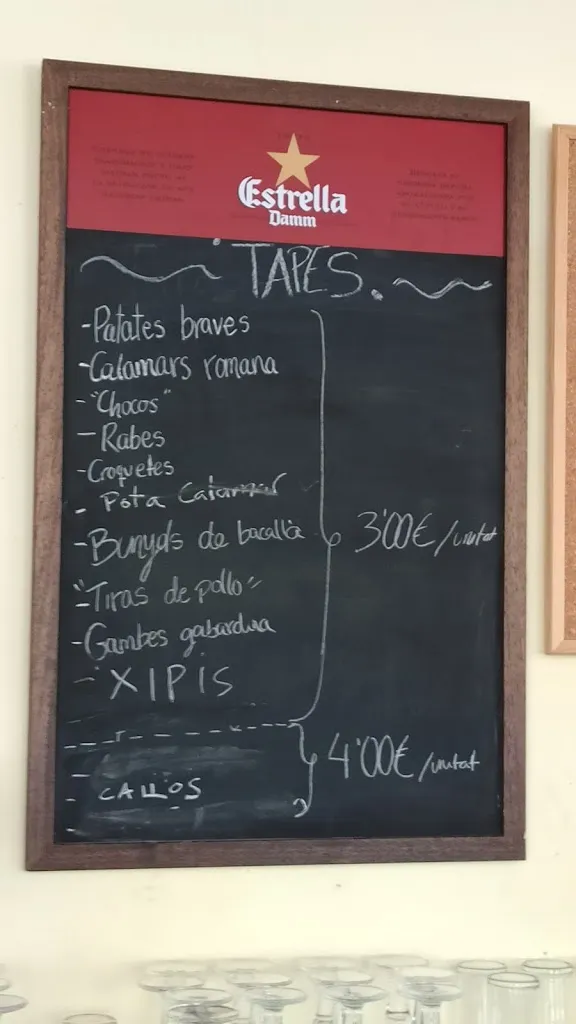 Estrella
Damm
TAPES.
-Patates braves
-Calamars romana
-"Chocos"
-Rabes
-Croquetes
- Pota Calamar
-Bunyols de bacallà
-"Tiras de pollo"
-Gambes gabardina
- XIPIS
3'00€/unitat
- CALLOS
4'00€/unitat